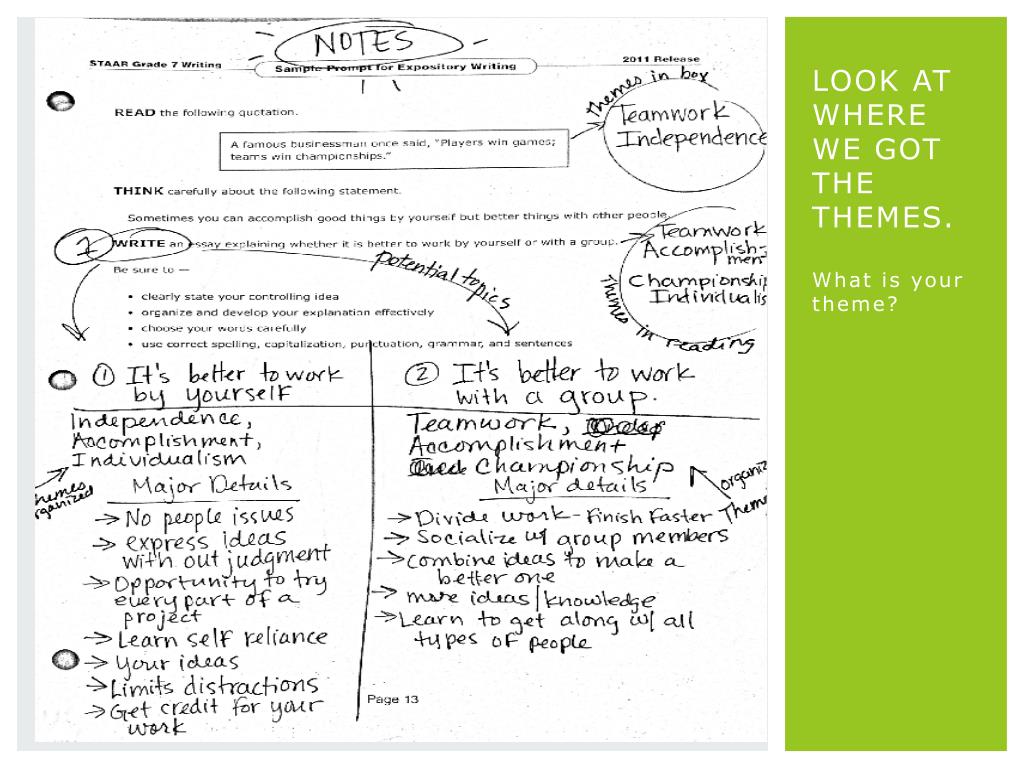 NOTES
STAAR Grade 7 Writing
Sample Prompt for Expository Writing
2011 Release
Themes in box
READ the following quotation.
Teamwork
Independence
A famous businessman once said, "Players win games;
teams win championships."
THINK carefully about the following statement.
Sometimes you can accomplish good things by yourself but better things with other people.
2
WRITE an essay explaining whether it is better to work by yourself or with a group.
Teamwork
Accomplish-
ment
Championship
Individualis
Themes in reading
Be sure to —
Potential topics
• clearly state your controlling idea
• organize and develop your explanation effectively
• choose your words carefully
• use correct spelling, capitalization, punctuation, grammar, and sentences
① It's better to work
by yourself
Independence,
Accomplishment,
Individualism
Themes
organized
Major Details
→ No people issues
→ express ideas
with out judgment
→ Opportunity to try
every part of a
project
→ Learn self reliance
→ Your ideas
→ Limits distractions
→ Get credit for your
work
② It's better to work
with a group.
Teamwork,
Accomplishment
Championship
organiz
Theme
Major details
→ Divide work - Finish Faster
→ Socialize w/ group members
→ combine ideas to make a
better one
→ more ideas/knowledge
→ Learn to get along w/ all
types of people
Page 13
LOOK AT
WHERE
WE GOT
THE
THEMES.
What is your
theme?